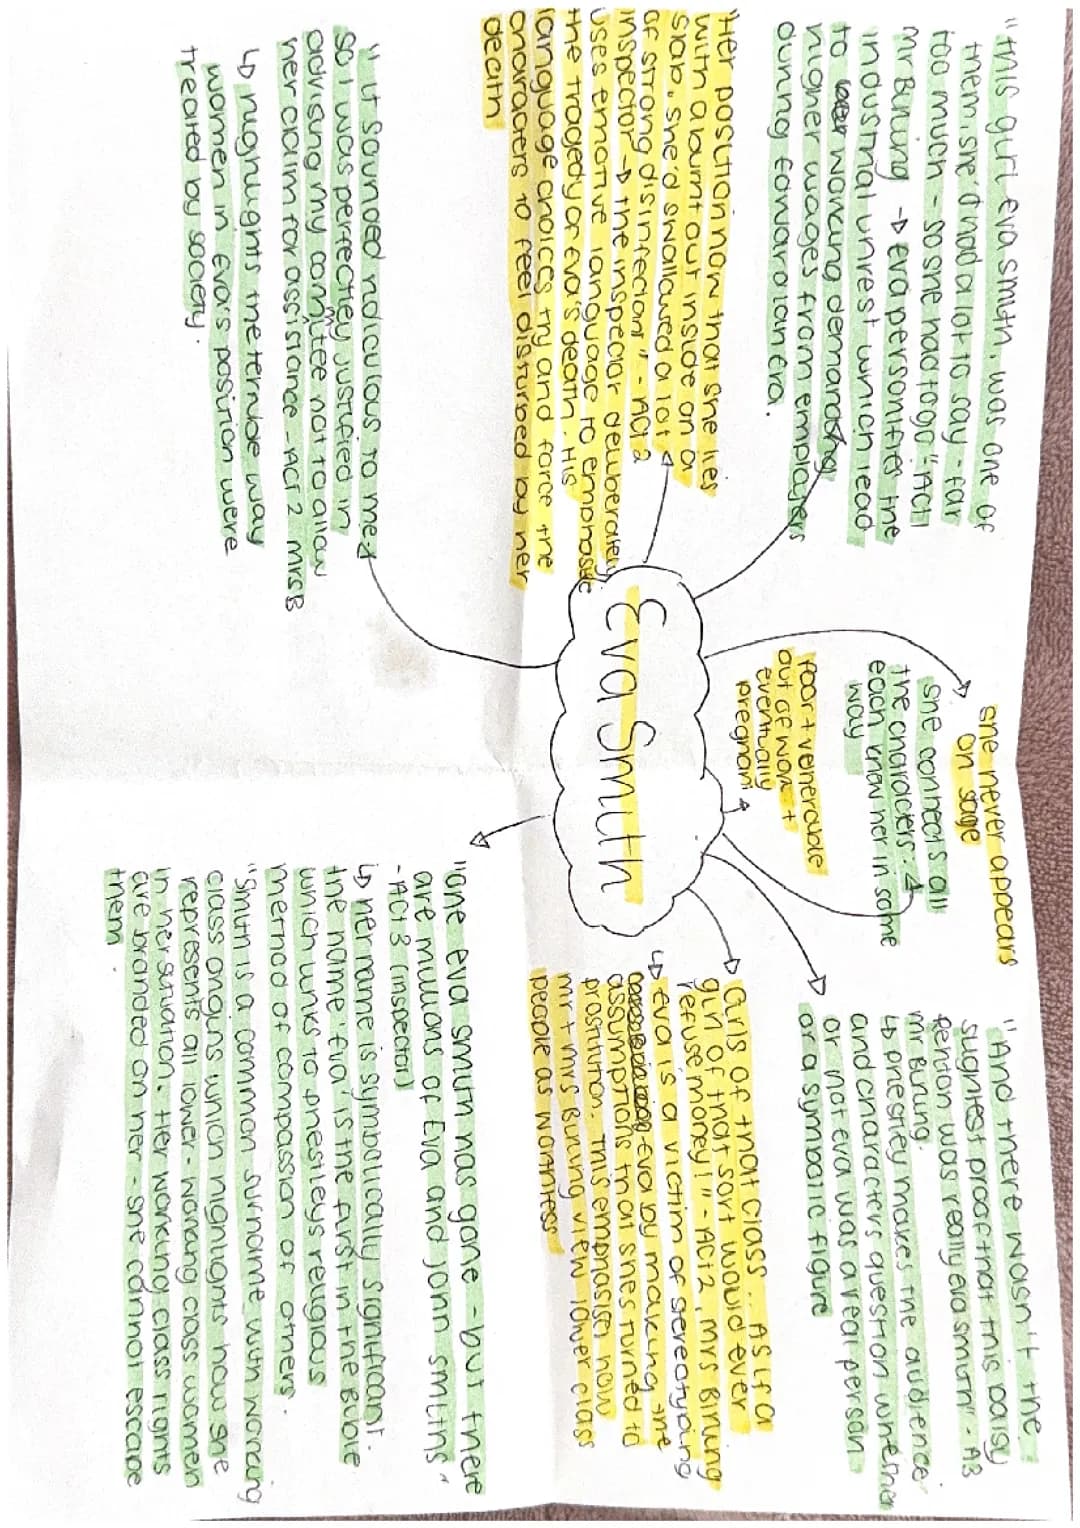 "this girl, eva smith, was one of
them. she'd had a lot to say - far
too much - so she had to go" - Act 1
Mr Birling → eva personifies the
industrial unrest which lead
to working demanding
higher wages from employers
during edwardian era.
"Her position now that she lies
with a burnt out inside on a
slab, she'd swallowed a lot
of strong disinfectant" - Act 2
inspector → the inspector deliberately
uses emotive language to emphasise
the tragedy of eva's death. His
language choices try and force the
characters to feel disturbed by her
death
"it sounded ridiculous to me
so I was perfectley justified in
advising my commitee not to allow
her claim for assistance - Act 2 Mrs B
↳ hughlights the terrible way
women in Eva's position were
treated by society.
Eva Smith
she never appears
on sage
she connects all
the characters.
each knew her in some
way
poor + venerable
out of work +
eventually
pregnant
"And there wasn't the
slughtest proof that this Daisy
Renton was really eva smith" - A3
Mr Birling.
↳ priestley makes the audience
and characters question whether
or not eva was a real person
or a symbolic figure
Girls of that class... As if a
girl of that sort would ever
refuse money!" - Act 2, Mrs Birling
↳ eva is a victim of stereotyping
eva by making the
assumptions that shes turned to
prostitution. This emphasises how
mr + mrs Birling view lower class
people as worthless
"One eva smith has gone - but there
are millions of Eva and John smiths"
- Act 3 (inspector)
↳ her name is symbolically significant.
the name 'Eva' is the first in the Bible
which links to priestleys religious
method of compassion of others.
"Smith is a common surname with working
class origins which highlights how she
represents all lower-working class women
in her situation. Her working class rights
are branded on her - she cannot escape
them.